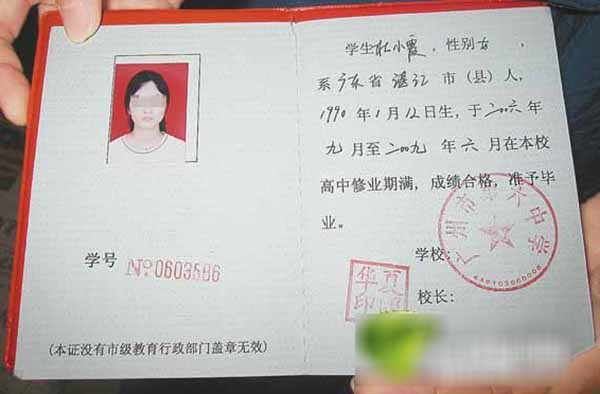 学号 №0603586
(本证没有市级教育行政部门盖章无效)
学生杜小霞，性别女，
系广东省湛江市（县）人，
1990年1月12日生，于二〇〇六年
九月至二〇〇九年六月在本校
高中修业期满，成绩合格，准予毕
业。
学校：
广州市第六中学
校长：
华夏
印